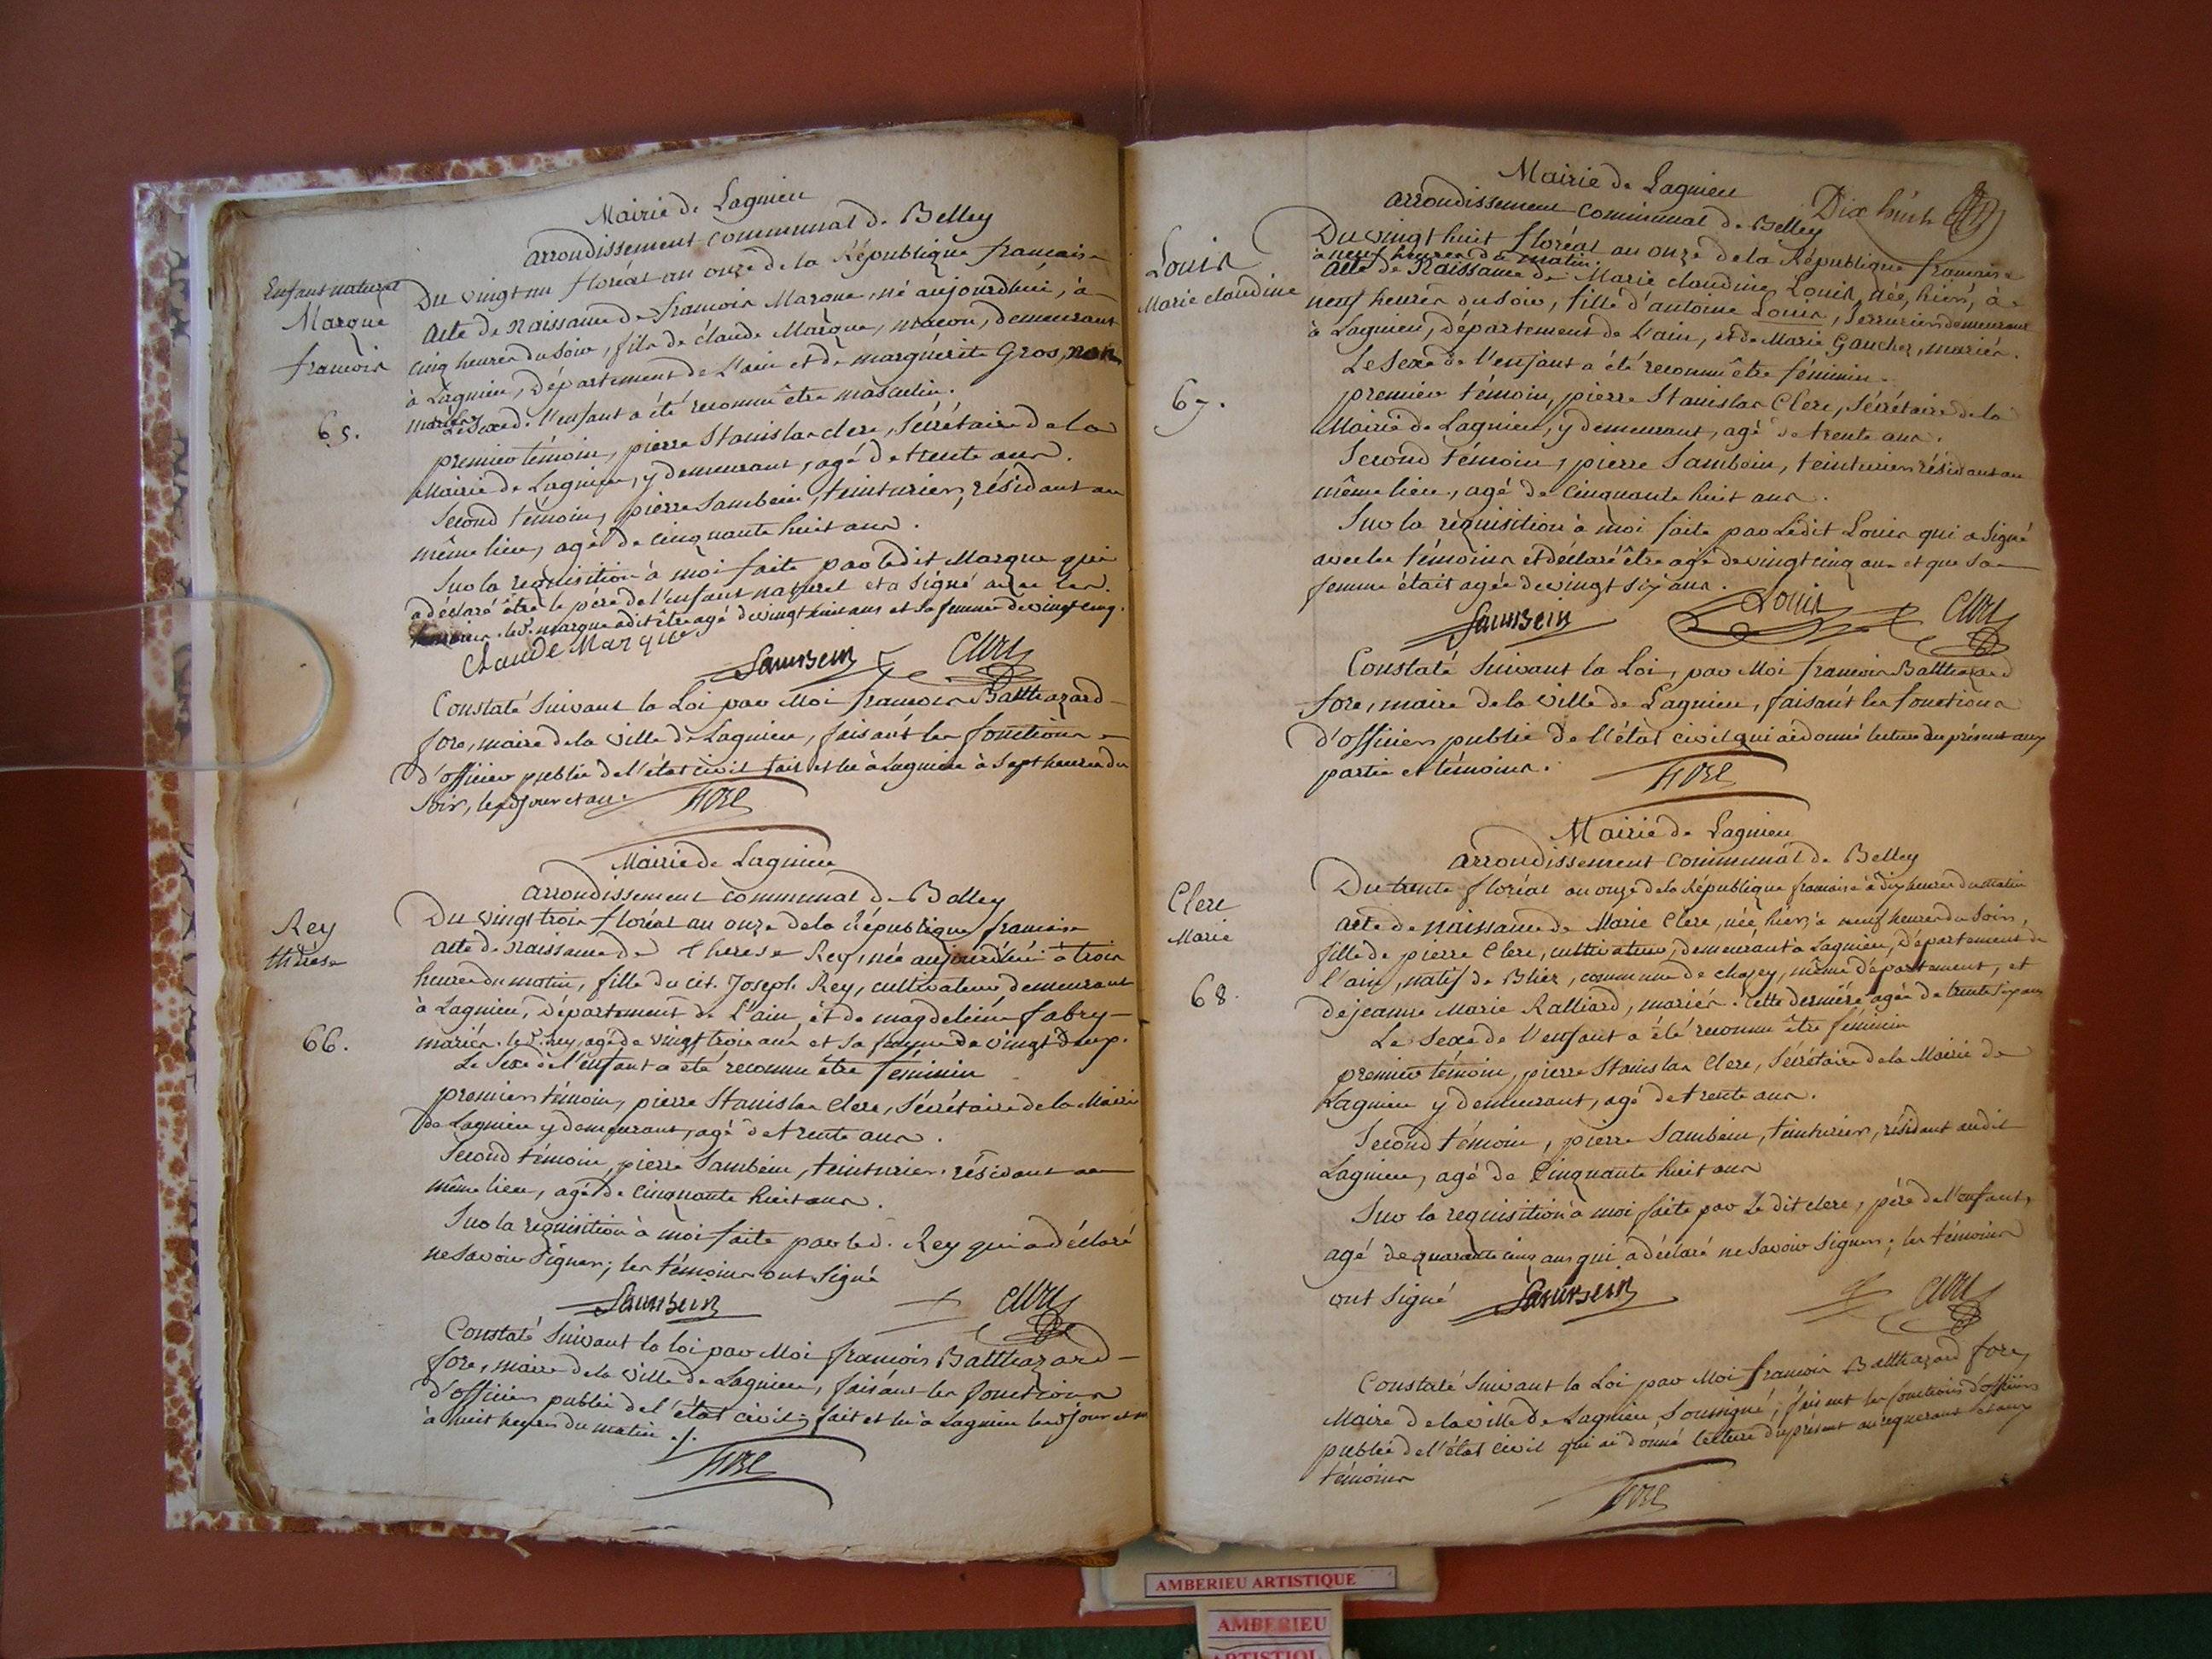 Mairie de Lagnieu
arrondissement communal de Belley
Enfant naturel
Marque
francois
65.
Du vingt un floréal an onze de la République francaise
acte de naissance de francois Marque, né aujourdhui, à
cinq heures du soir, fils de claude Marque, macon, demeurant
à Lagnieu, département de L'ain et de marguérite Gros, non
mariés. Le Sexe de l'enfant a été reconnu être masculin.
premier témoin, pierre Stanislas clerc, Sécrétaire de la
Mairie de Lagnieu, y demeurant, agé de trente ans.
Second témoin, pierre Sambein, teinturier, résidant au
même lieu, agé de cinquante huit ans.
Sur la requisition à moi faite par ledit Marque qui
a déclaré être le père de l'enfant naturel et a signé avec les
témoins. led. marque a dit être agé de vingt huit ans et sa femme de vingt cinq.
Claude Marque
Sambein
Clerc
Constaté Suivant la Loi par Moi francois Balthazard
fore, maire de la ville de Lagnieu, faisant les fonctions
d'officier public de l'état civil fait et lu à Lagnieu à Sept heures du
Soir, lesd. jour et an.
fore
Mairie de Lagnieu
arrondissement communal de Belley
Rey
thérèse
66.
Du vingt trois floréal an onze de la République francaise
acte de naissance de Therese Rey, née aujourdhui à trois
heures du matin, fille du cit. Joseph Rey, cultivateur demeurant
à Lagnieu, département de L'ain, et de magdeleine fabry
mariés. led. Rey, agé de vingt trois ans et sa femme de vingt deux.
Le Sexe de l'enfant a été reconnu être féminin
premier témoin, pierre Stanislas clerc, Sécrétaire de la Mairie
de Lagnieu y demeurant, agé de trente ans.
Second témoin, pierre Sambein, teinturier, résidant au
même lieu, agé de cinquante huit ans.
Sur la requisition à moi faite par led. Rey qui a déclaré
ne savoir signer; les témoins ont signé
Sambein
Clerc
Constaté suivant la loi par Moi francois Balthazard
fore, maire de la ville de Lagnieu, faisant les fonctions
d'officier public de l'état civil; fait et lu à Lagnieu lesd. jour et an
à huit heures du matin ./.
fore
Mairie de Lagnieu
arrondissement communal de Belley
Dix huit
Louis
Marie claudine
67.
Du vingt huit floréal an onze de la République francaise
à neuf heures du matin.
acte de Naissance de Marie claudine Louis, née, hier, à
neuf heures du soir, fille d'antoine Louis, Serrurier demeurant
à Lagnieu, département de L'ain, et de Marie Gaucher, mariés.
Le Sexe de l'enfant a été reconnu être féminin.
premier témoin, pierre Stanislas Clerc, Sécrétaire de la
Mairie de Lagnieu, y demeurant, agé de trente ans.
Second témoin, pierre Sambein, teinturier, résidant au
même lieu, agé de cinquante huit ans.
Sur la réquisition à moi faite par Ledit Louis qui a signé
avec les témoins et déclaré être agé de vingt cinq ans et que sa
femme était agée de vingt six ans.
Sambein
Louis
Clerc
Constaté Suivant la Loi, par Moi francois Balthazard
fore, maire de la ville de Lagnieu, faisant les fonctions
d'officier public de l'état civil qui ai donné lecture du présent aux
parties et témoins.
fore
Mairie de Lagnieu
arrondissement communal de Belley
Clerc
Marie
68.
Du trente floréal an onze de la République francaise à dix heures du matin
acte de naissance de Marie Clerc, née, hier, à neuf heures du soir,
fille de pierre Clerc, cultivateur, demeurant à Lagnieu, département de
l'ain, natif de Blier, commune de chazey, même département, et
de jeanne Marie Ralliard, mariés. cette dernière agée de trente six ans
Le Sexe de l'enfant a été reconnu être féminin
premier témoin, pierre Stanislas Clerc, Sécrétaire de la Mairie de
Lagnieu y demeurant, agé de trente ans.
Second témoin, pierre Sambein, teinturier, résidant audit
Lagnieu, agé de Cinquante huit ans
Sur la requisition à moi faite par Le dit clerc, père de l'enfant,
agé de quarante cinq ans qui a déclaré ne savoir signer; les témoins
ont signé
Sambein
Clerc
Constaté Suivant la Loi par Moi francois Balthazard fore,
Maire de la ville de Lagnieu, Soussigné, faisant les fonctions d'officier
public de l'état civil qui ai donné lecture du présent au requerant et aux
témoins
fore
AMBERIEU ARTISTIQUE
AMBERIEU
ARTISTIQU